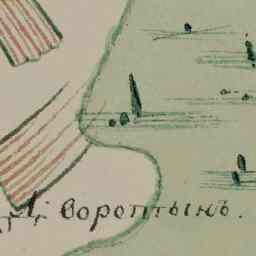 Вороптынъ.